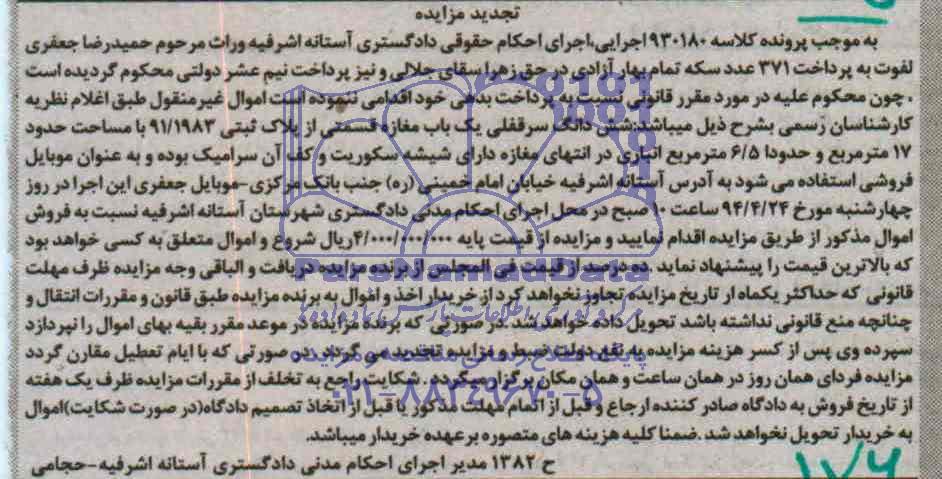 تجدید مزایده
به موجب پرونده کلاسه ۹۳۰۱۸۰ اجرایی،اجرای احکام حقوقی دادگستری آستانه اشرفیه وراث مرحوم حمیدرضا جعفری
لفوت به پرداخت ۳۷۱ عدد سکه تمام بهار آزادی در حق زهرا سقای جلالی و نیز پرداخت نیم عشر دولتی محکوم گردیده است
،چون محکوم علیه در مورد مقرر قانونی نسبت به پرداخت بدهی خود اقدامی ننموده است اموال غیرمنقول طبق اعلام نظریه
کارشناسان رسمی بشرح ذیل میباشد:شش دانگ سرقفلی یک باب مغازه قسمتی از پلاک ثبتی ۹۱/۱۹۸۳ با مساحت حدود
۱۷ مترمربع و حدودا ۶/۵ مترمربع انباری در انتهای مغازه دارای شیشه سکوریت و کف آن سرامیک بوده و به عنوان موبایل
فروشی استفاده می شود به آدرس آستانه اشرفیه خیابان امام خمینی (ره) جنب بانک مرکزی-موبایل جعفری این اجرا در روز
چهارشنبه مورخ ۹۴/۴/۲۴ ساعت ۱۰ صبح در محل اجرای احکام مدنی دادگستری شهرستان آستانه اشرفیه نسبت به فروش
اموال مذکور از طریق مزایده اقدام نمایید و مزایده از قیمت پایه ۴/۰۰۰/۰۰۰/۰۰۰ریال شروع و اموال متعلق به کسی خواهد بود
که بالاترین قیمت را پیشنهاد نماید .ده درصد از قیمت فی المجلس از برنده مزایده دریافت و الباقی وجه مزایده ظرف مهلت
قانونی که حداکثر یکماه از تاریخ مزایده تجاوز نخواهد کرد از خریدار اخذ و اموال به برنده مزایده طبق قانون و مقررات انتقال و
چنانچه منع قانونی نداشته باشد تحویل داده خواهد شد .در صورتی که برنده مزایده در موعد مقرر بقیه بهای اموال را نپردازد
سپرده وی پس از کسر هزینه مزایده به نفع دولت ضبط و مزایده تجدید می گردد .در صورتی که با ایام تعطیل مقارن گردد
مزایده فردای همان روز در همان ساعت و همان مکان برگزار میگردد .شکایت راجع به تخلف از مقررات مزایده ظرف یک هفته
از تاریخ فروش به دادگاه صادر کننده ارجاع و قبل از اتمام مهلت مذکور یا قبل از اتخاذ تصمیم دادگاه(در صورت شکایت)اموال
به خریدار تحویل نخواهد شد .ضمنا کلیه هزینه های متصوره بر عهده خریدار میباشد.
ح ۱۳۸۲ مدیر اجرای احکام مدنی دادگستری آستانه اشرفیه-حجامی
۱۷۶
ParsNamadData
۰۲۱-۸۸۳۴۹۶۷۰-۵